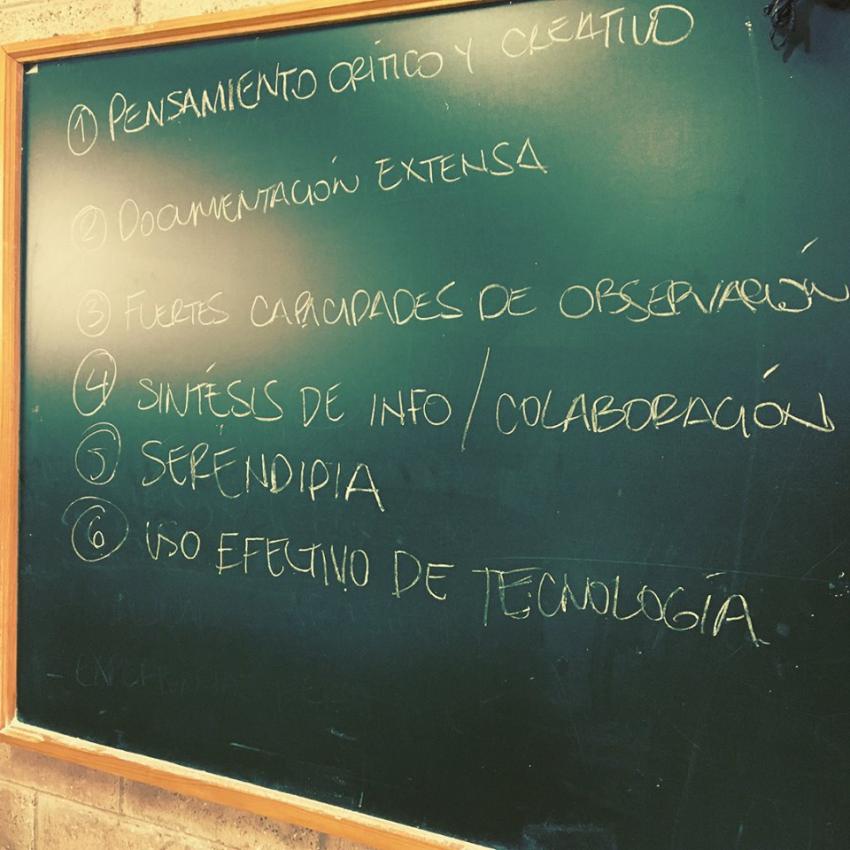 ① PENSAMIENTO CRÍTICO Y CREATIVO
② DOCUMENTACIÓN EXTENSA
③ FUERTES CAPACIDADES DE OBSERVACIÓN
④ SINTÉSIS DE INFO / COLABORACIÓN
⑤ SERENDIPIA
⑥ USO EFECTIVO DE TECNOLOGÍA